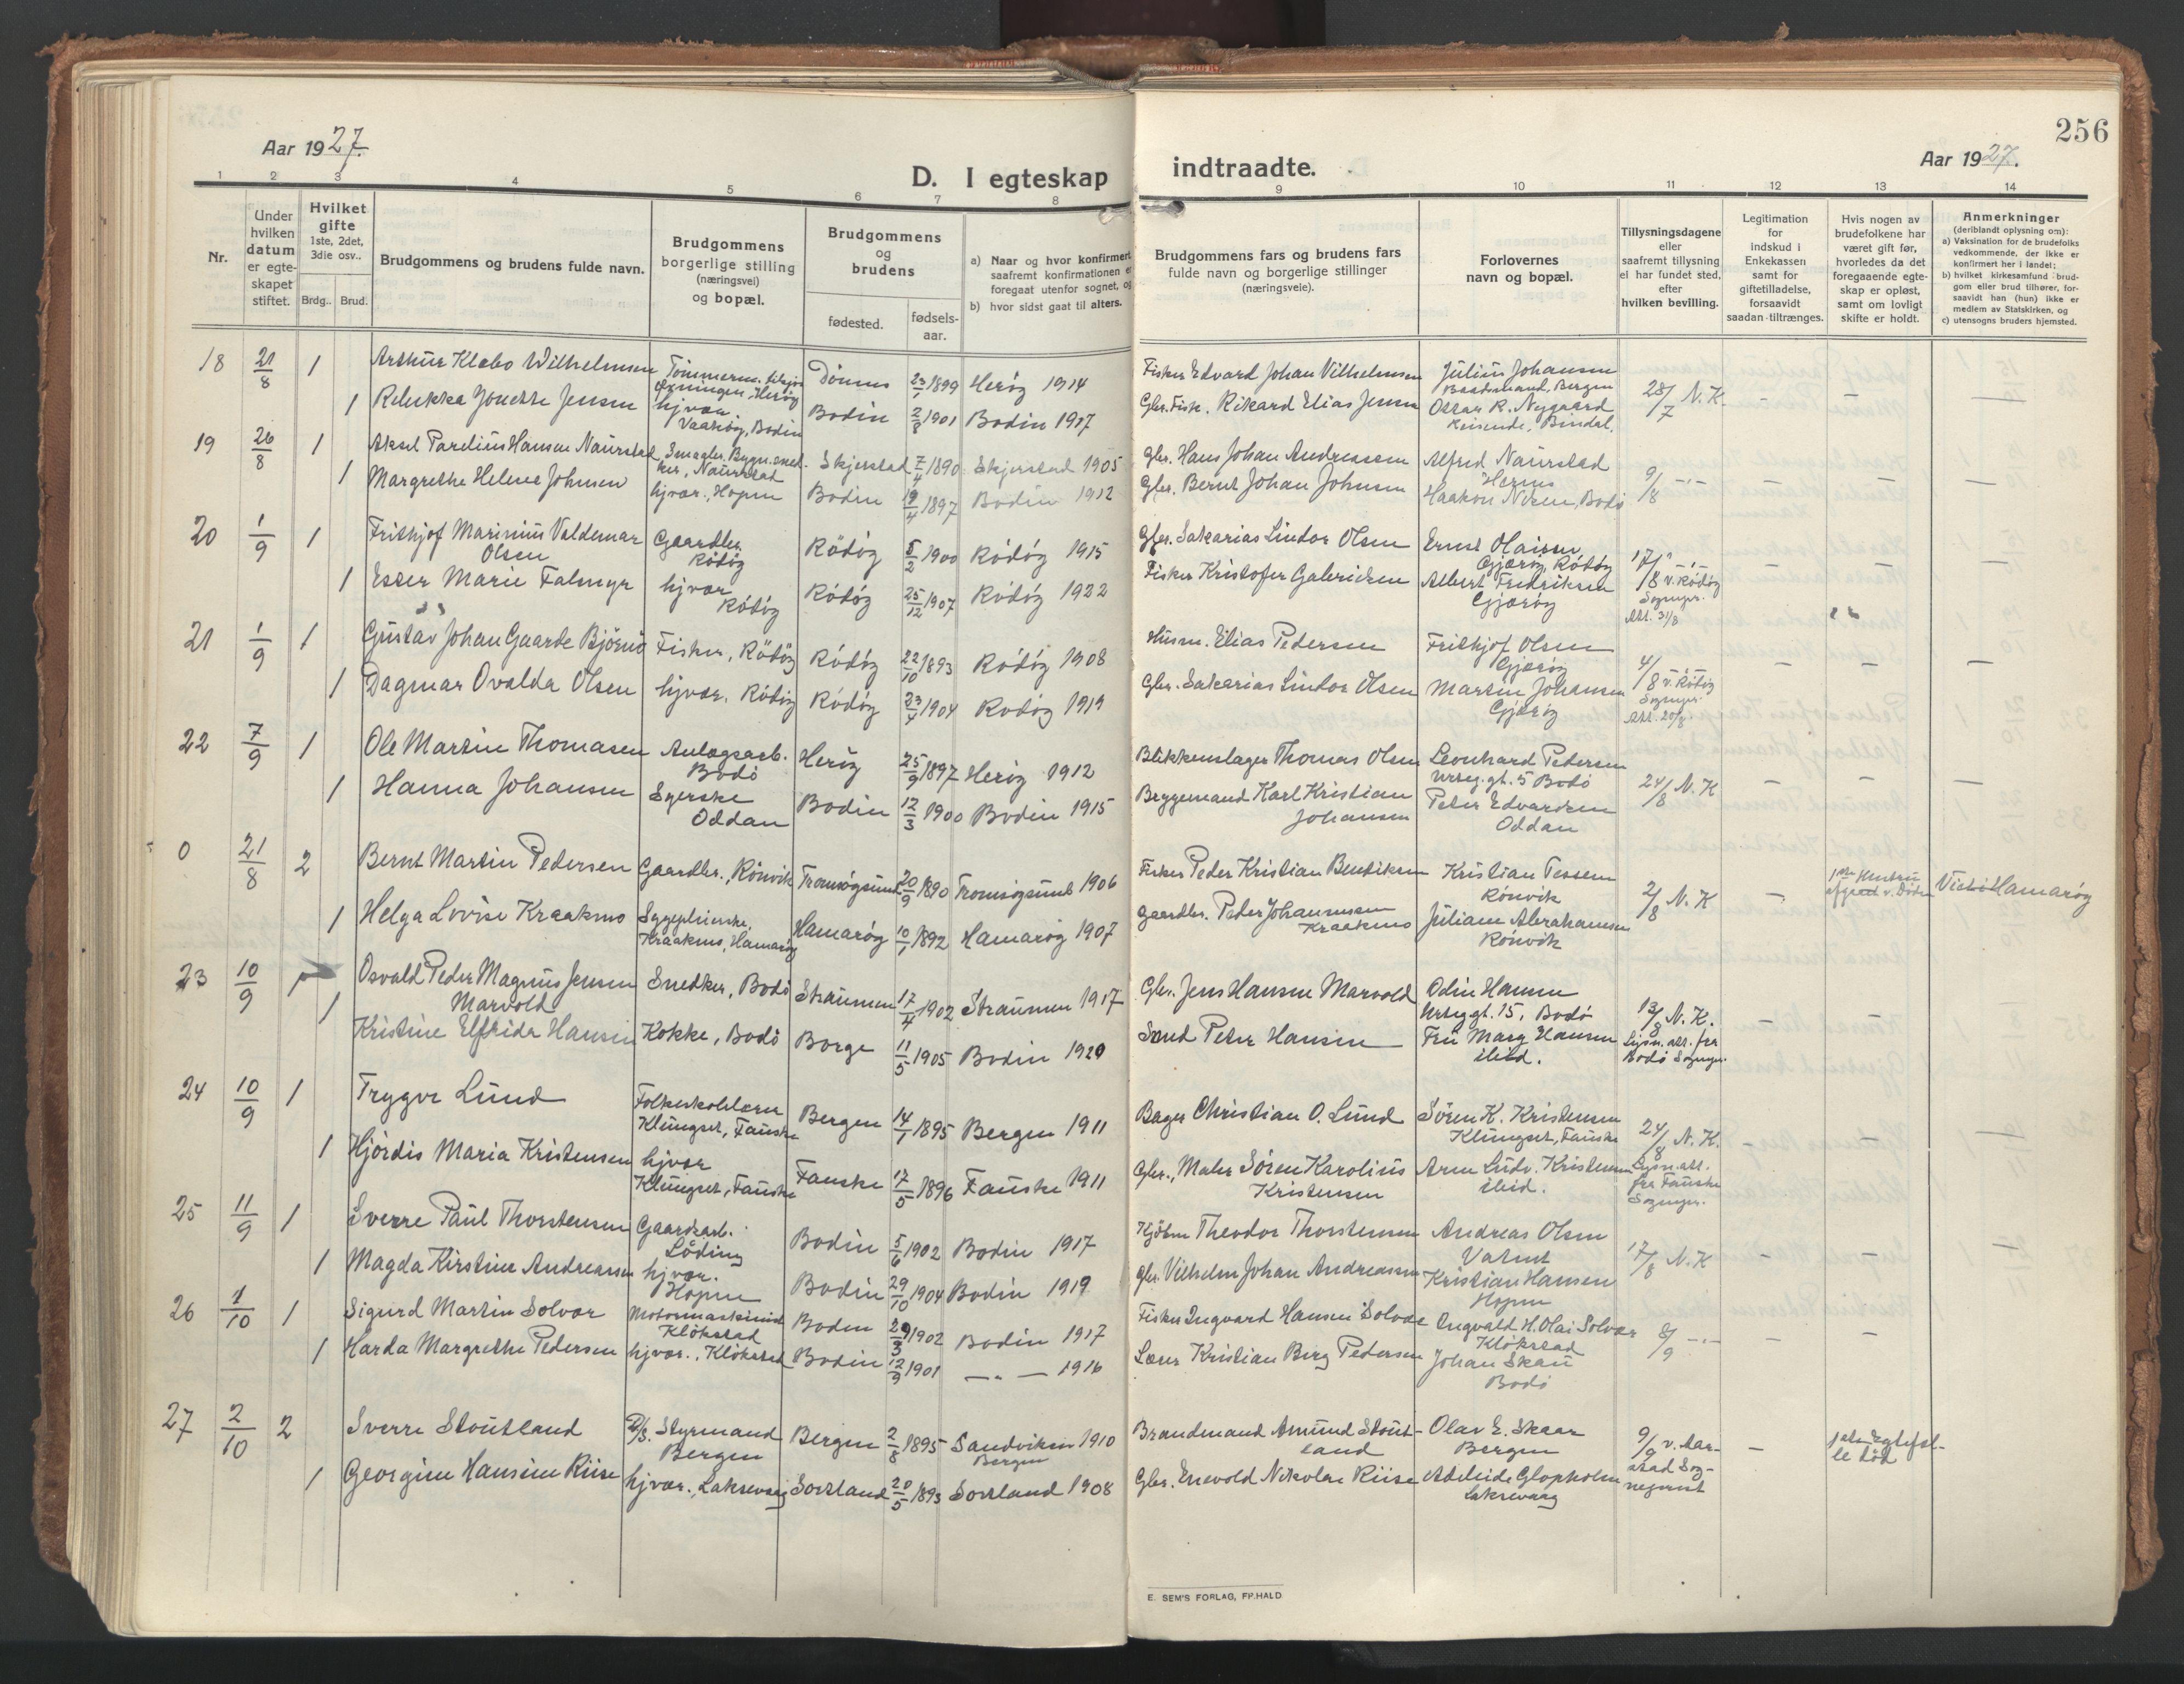 256
Aar 1927.
D. I egteskap indtraadte.
Aar 1927.
1 2 3 4 5 6 7 8 9 10 11 12 13 14
Nr.
Under hvilken datum er egteskapet stiftet.
Hvilket gifte 1ste, 2det, 3die osv..
Brdg.. Brud.
Brudgommens og brudens fulde navn.
Brudgommens borgerlige stilling (næringsvei) og bopæl.
Brudgommens og brudens
fødested. fødsels-aar.
a) Naar og hvor konfirmert saafremt konfirmationen er foregaat utenfor sognet, og
b) hvor sidst gaat til alters.
Brudgommens fars og brudens fars fulde navn og borgerlige stillinger (næringsveie).
Forlovernes navn og bopæl.
Tillysningsdagene eller saafremt tillysning ei har fundet sted, efter hvilken bevilling.
Legitimation for indskud i Enkekassen samt for giftetilladelse, forsaavidt saadan tiltrænges.
Hvis nogen av brudefolkene har været gift før, hvorledes da det foregaaende egteskap er opløst, samt om lovligt skifte er holdt.
Anmerkninger (deriblandt oplysning om):
a) Vaksination for de brudefolks vedkommende, der ikke er konfirmert her i landet;
b) hvilket kirkesamfund brudgom eller brud tilhører, forsaavidt han (hun) ikke er medlem av Statskirken, og
c) utensogns bruders hjemsted.
18 21/8 1 Arthur Klæbo Wilhelmsen Tømmerm. Herøy Dønnes 23/1 1899 Herøy 1914 Fisker Edvard Johan Vilhelmsen Julius Johansen Baadsmand, Bergen 28/7 N.K. — — —
1 Rebekka Jonette Jensen hjvær. Vaagøy, Bodin Bodin 2/8 1901 Bodin 1917 Gbr. Fisk. Rikard Elias Jensen Oscar R. Nygaard Reisende, Bindal.
19 26/8 1 Aksel Parelius Hansen Naurstad Smaabr. Bygn.snedker, Naurstad Skjerstad 7/4 1890 Skjerstad 1905 Gbr. Hans Johan Andreassen Alfred Naurstad 9/8 -"- — — —
1 Margrethe Helene Johnsen hjvær., Hopen Bodin 19/4 1897 Bodin 1912 Gbr. Bernt Johan Johnsen Haakon Nizen, Bodø
20 1/9 1 Frithjof Marinius Valdemar Olsen Gaardbr. Rödöy Rödöy 5/2 1900 Rödöy 1915 Gbr. Sakarias Lindor Olsen Ernst Olaisen Gjærøy, Rödöy 17/8 -"- v. Rödöy Sogneprs. Att. 31/8
1 Ester Marie Falmyr hjvær Rödöy Rödöy 25/12 1907 Rödöy 1922 Fisker Kristofer Galericksen Albert Fredriksen Gjærøy
21 1/9 1 Gustav Johan Gaarde Björnö Fisker, Rödöy Rödöy 22/10 1893 Rödöy 1908 Husm. Elias Pedersen Frithjof Olsen Gjærøy 4/8 -"- v. Rödöy Sogneprs. Att. 20/8. — — —
1 Dagmar Ovalda Olsen hjvær. Rödöy Rödöy 23/4 1904 Rödöy 1919 Gbr. Sakarias Lindor Olsen Martin Johansen Gjærøy
22 7/9 1 Ole Martin Thomasen Anlægsarb. Bodø Herøy 25/9 1897 Herøy 1912 Blikkenslager Thomas Olsen Leonhard Petersen Urteg.gt. 5 Bodø 24/8 N.K — — —
1 Hanna Johansen Syerske Oddan Bodin 12/3 1900 Bodin 1915 Bryggemand Karl Kristian Johansen Peter Edvardsen Oddan
0 21/8 2 Bernt Martin Pedersen Gaardbr., Rönvik Tromsøysund 20/9 1890 Tromsöysund 1906 Fisker Peder Kristian Bentiksen Kristian Tessem Rönvik 2/8 N.K — 1ste Hustru afgaaet v. Döden Viet i Hamarøy
1 Helga Lovise Kraakmo Sygepleierske, Kraakmo, Hamarøy Hamarøy 10/1 1892 Hamarøy 1907 Gaardbr. Peter Johannesen Kraakmo Juliane Abrahamsen Rönvik
23 10/9 1 Osvald Peder Magnus Jensen Marvold Snedker, Bodø Straumen 17/4 1902 Straumen 1917 Gbr. Jens Hansen Marvold Odin Hansen Urteg.gt. 15, Bodø 13/8 N.K. Lysn.att. fra Bodø Sognepr. — —
1 Kristine Elfrida Hansen Kokke, Bodø Borge 11/5 1905 Bodin 1920 Smed Peter Hansen Fru Marg Hansen ibid.
24 10/9 1 Trygve Lund Folkeskolelærer Klungset, Fauske Bergen 14/1 1895 Bergen 1911 Bager Christian O. Lund Sören K. Kristensen Klungset, Fauske 24/8 N.K. Lysn.att. fra Fauske Sognepr. — — —
1 Hjördis Maria Kristensen hjvær Klungset, Fauske Fauske 17/5 1896 Fauske 1911 Gbr., Maler Sören Karolius Kristensen Arne Ludv. Kristensen ibid.
25 11/9 1 Sverre Paul Thorstensen Gaardsarb. Löding Bodin 5/6 1902 Bodin 1917 Kjøbm Theodor Thorstensen Andreas Olsen Vatnet 17/8 N.K — — —
1 Magda Kirstine Andreassen hjvær. Hopen Bodin 29/10 1904 Bodin 1919 Gbr. Vilhelm Johan Andreassen Kristian Hansen Hopen
26 1/10 1 Sigurd Martin Solvær Motormaskinist Klökstad Bodin 29/3 1902 Bodin 1917 Fisker Ingvard Hansen Solvær Ingvald H. Olai Solvær Klökstad 8/9 -"- — —
1 Harda Margrethe Pedersen hjvær., Klökstad Bodin 12/9 1901 — " — 1916 Lærer Kristian Berg Pedersen Johan Skau Bodø
27 2/10 2 Sverre Stoutland D/S. Styrmand Bergen Bergen 2/8 1895 Sandviken Bergen 1910 Brandmand Amund Stoutland Olav E. Skaar Bergen 9/9 v. Aarstad Sogneprest — 1ste Egtefælle död
1 Georgine Hansine Riise hjvær., Laksevaag Sortland 20/5 1893 Sortland 1908 Gbr. Enevold Nikolai Riise Adeleide Glopholm Laksevaag
E. SEM'S FORLAG, FR.HALD